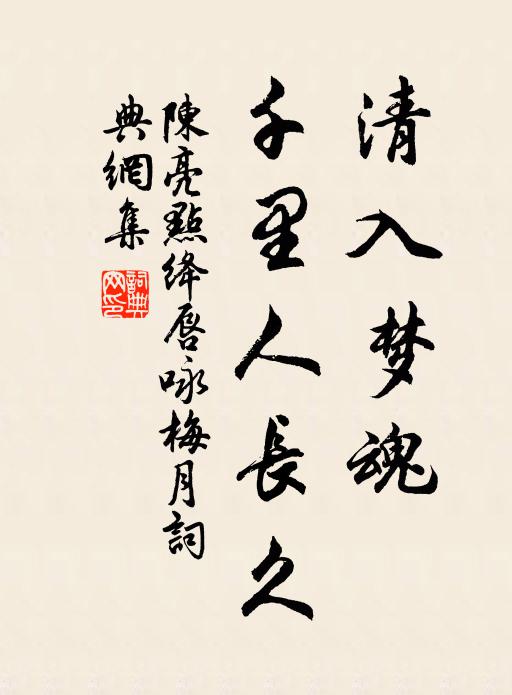 清入梦魂
千里人長久
陳亮點絳唇咏梅月詞
典網集
詞典
网印